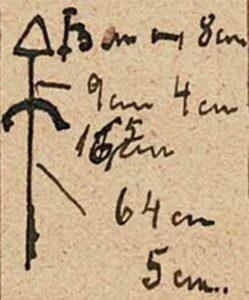 13 cm — 8 cm
9 cm 4 cm
cm
64 cm
5 cm..